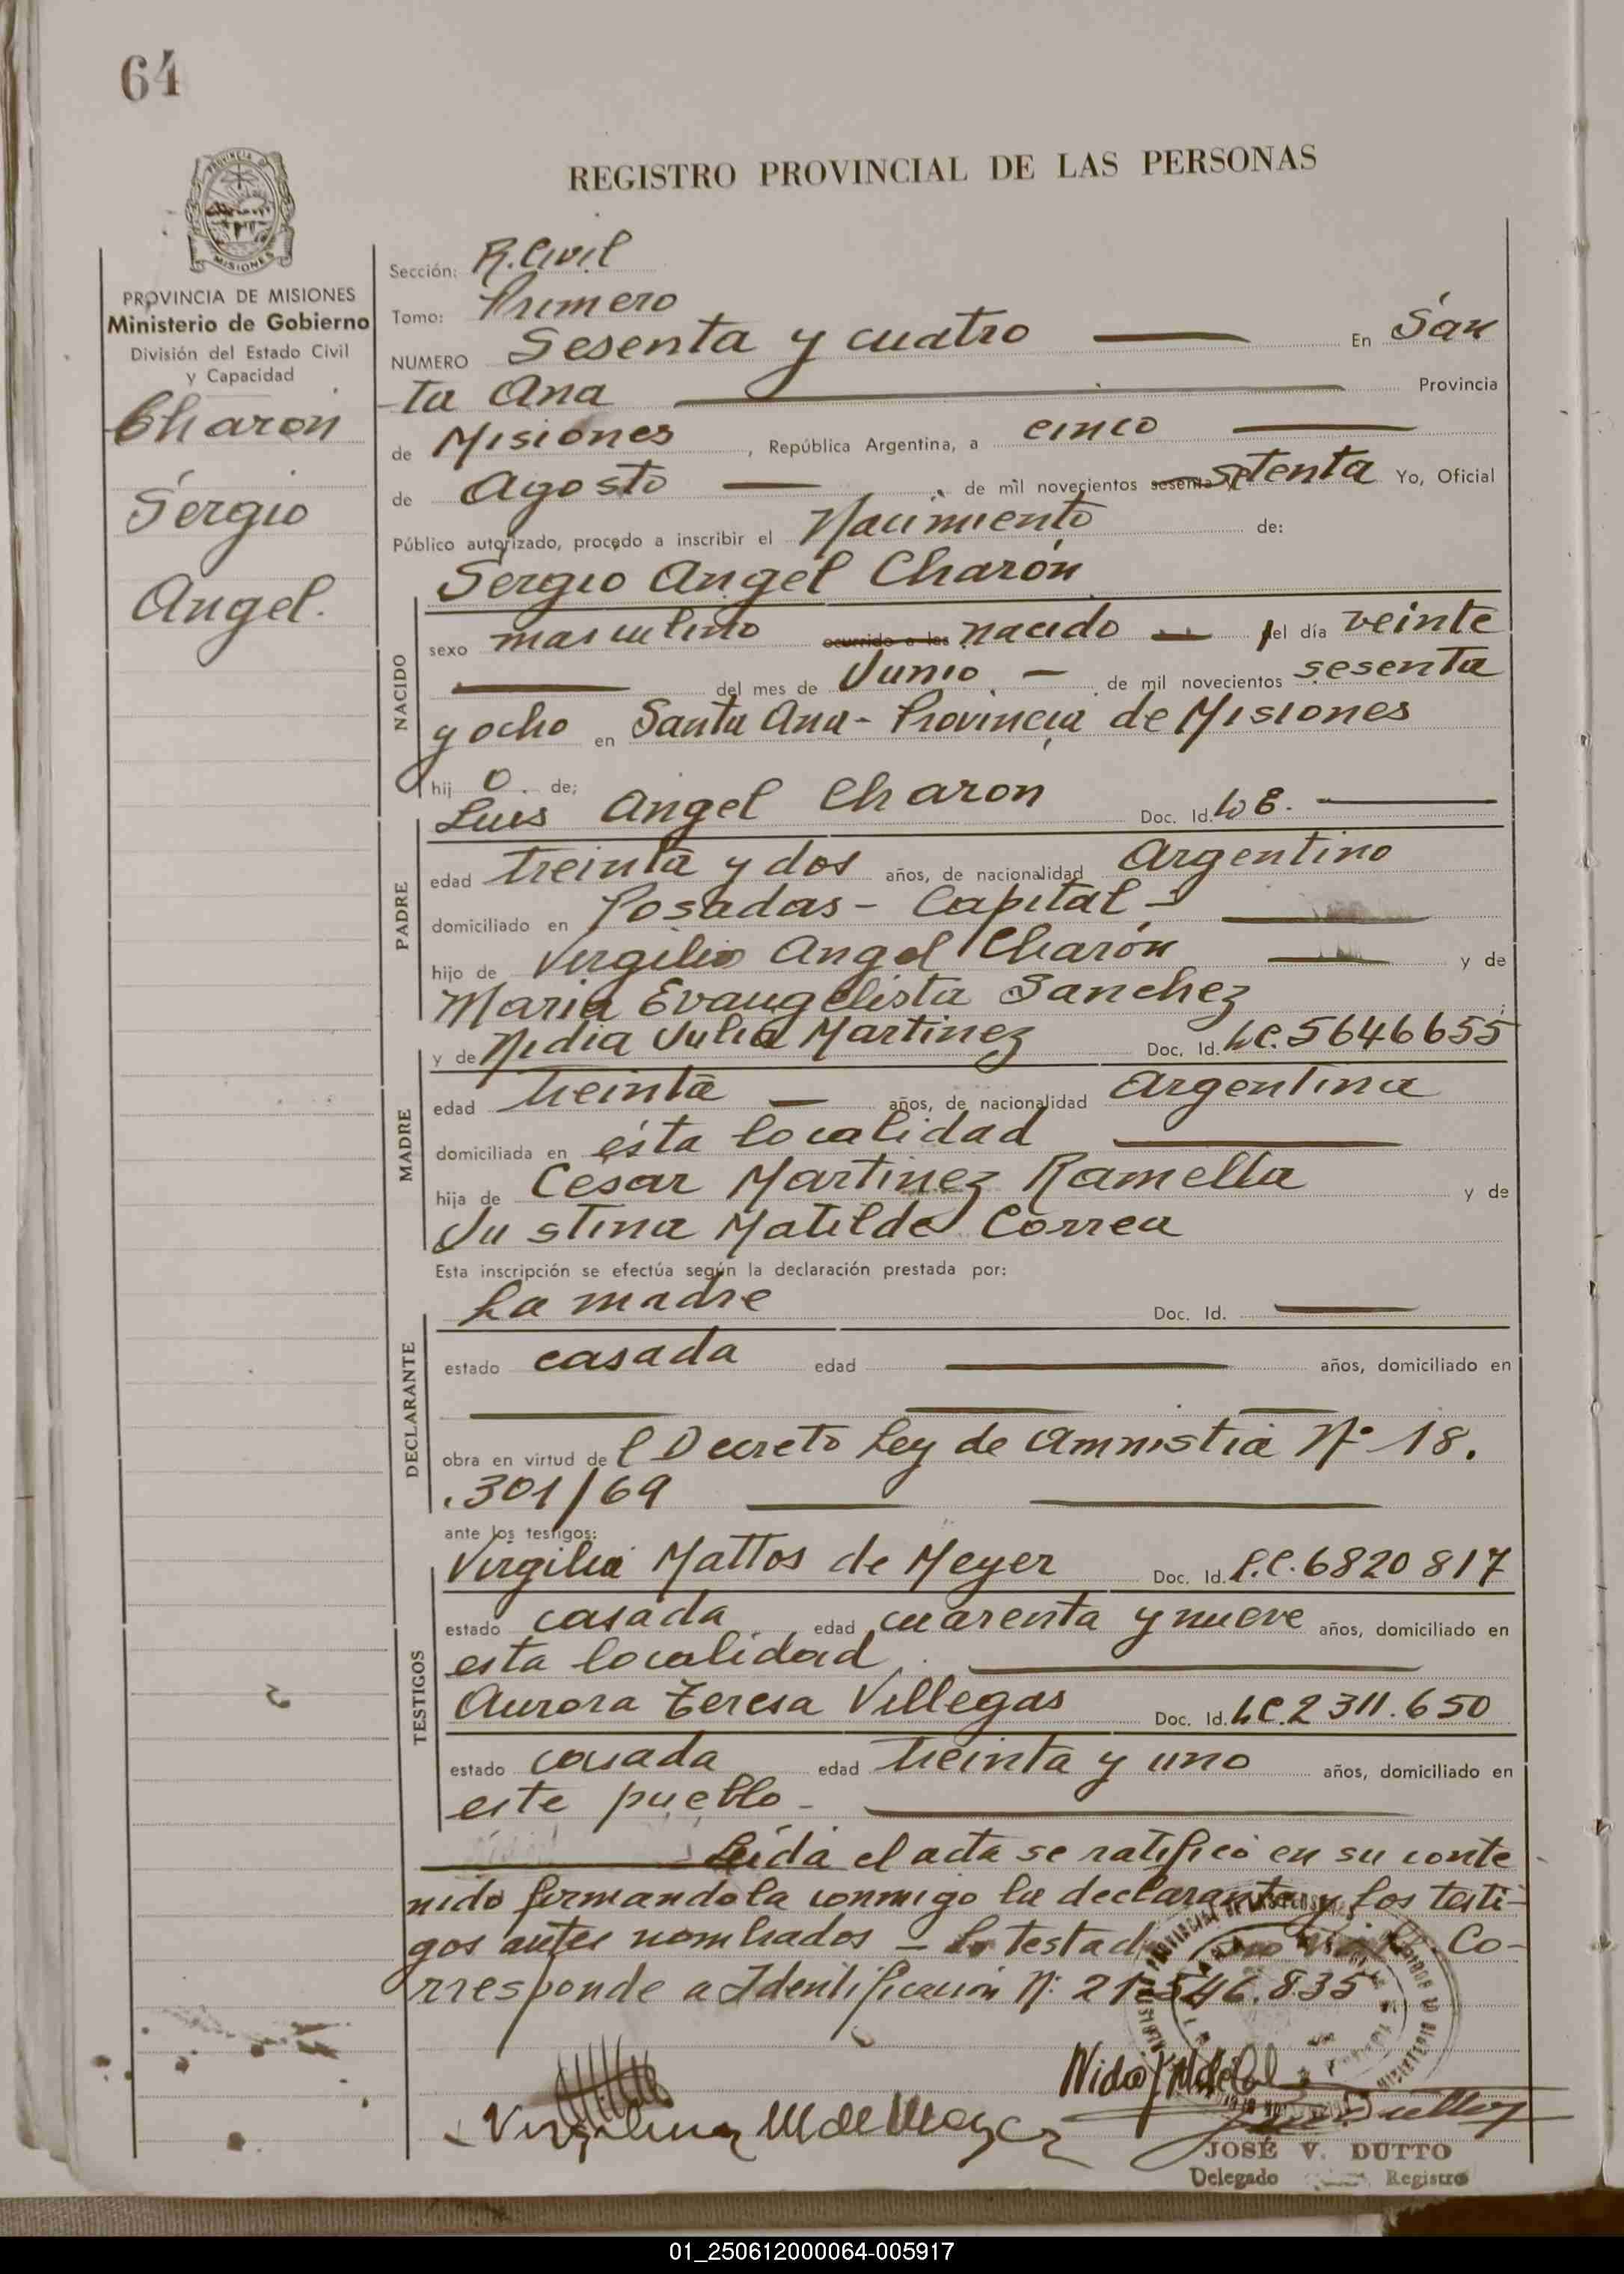 64
REGISTRO PROVINCIAL DE LAS PERSONAS
PROVINCIA DE MISIONES
MISIONES
PROVINCIA DE MISIONES
Ministerio de Gobierno
División del Estado Civil
y Capacidad
Charon
Sergio
Angel.
Sección: R. Civil
Tomo: Primero
NUMERO Sesenta y cuatro En San
ta Ana Provincia
de Misiones, República Argentina, a cinco
de Agosto, de mil novecientos sesenta setenta Yo, Oficial
Público autorizado, procedo a inscribir el Nacimiento de:
Sergio Angel Charón
NACIDO
sexo masculino ocurrido a las nacido del día veinte
del mes de Junio de mil novecientos sesenta
y ocho en Santa Ana - Provincia de Misiones
hij o. de;
PADRE
Luis Angel Charon Doc. Id. LE.
edad treinta y dos años, de nacionalidad Argentino
domiciliado en Posadas - Capital -
hijo de Virgilio Angel Charón y de
Maria Evangelista Sanchez
MADRE
y de Nidia Julia Martinez Doc. Id. LC. 5646655
edad treinta años, de nacionalidad Argentina
domiciliada en ésta localidad
hija de César Martinez Ramella y de
Justina Matilde Correa
Esta inscripción se efectúa según la declaración prestada por:
DECLARANTE
La madre Doc. Id.
estado casada edad años, domiciliado en
obra en virtud de l Decreto Ley de Amnistia N° 18.
.301/69
ante los testigos:
TESTIGOS
Virgilia Mattos de Meyer Doc. Id. L.C. 6820817
estado casada edad cuarenta y nueve años, domiciliado en
esta localidad.
Aurora Teresa Villegas Doc. Id. LC. 2311.650
estado casada edad treinta y uno años, domiciliado en
este pueblo -
Leída el acta se ratificó en su conte
nido firmandola conmigo la declarante y los testi-
gos antes nombrados - Lo testado no vale. Co-
rresponde a Identificación N: 21.546.835
Virgilina M de Meyer
JOSÉ V. DUTTO
Delegado Registro
01_250612000064-005917